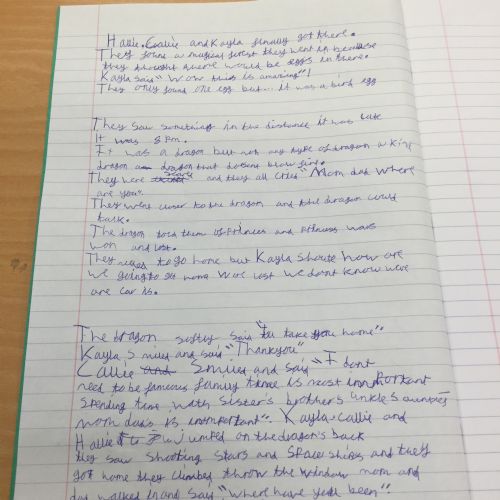 Hallie. Callie and Kayla finally got there.
They found a magical forest they went in because
they thought there would be eggs in there.
Kayla said "Wow this is amazing"!
They only found one egg but... It was a bird egg
They saw something in the distance it was late
It was 8 Pm.
It was a dragon but not any type of dragon a kind
dragon a dragon that doesnt blow fire.
They were scared and they all cried "Mom dad where
are you".
They went closer to the dragon and the dragon could
talk.
The dragon told them of and wars
won and lost.
They to go home but Kayla shouts how are
we going to get home were lost we dont know were
are car is.
The dragon softly said "Ill take you home".
Kayla smiled and said "Thankyou"
Callie and Smiled and said "I dont
need to be famous family time is most important
spending time with sister's brother's unkle's aunties
mom dad's is important". Kayla Callie and
Hallie on the dragon's back
they saw shooting stars and space ships and they
got home they climbed throw the window mom and
dad walked in and said "where have you been".